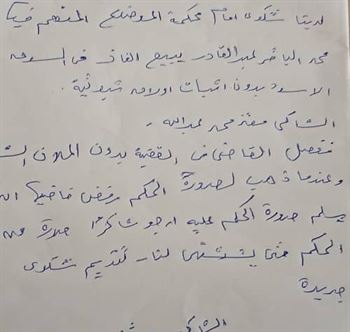 لدينا شكوى امام محكمة المواضيع المتهم فيها
محمد الباقر عبدالقادر يبيع الغاز في السوق
الاسود بدون اثبات اوراق ثبوتية.
الشاكي معتز محمد عبدالله.
فصل القاضي في القضية بدون
وعندما ذهب لصورة الحكم رفض قاضيها ان
يسلم صورة الحكم عليه ارجو شاكرًا صورة من
الحكم حتى يتسنى لنا تقديم شكوى
جديدة